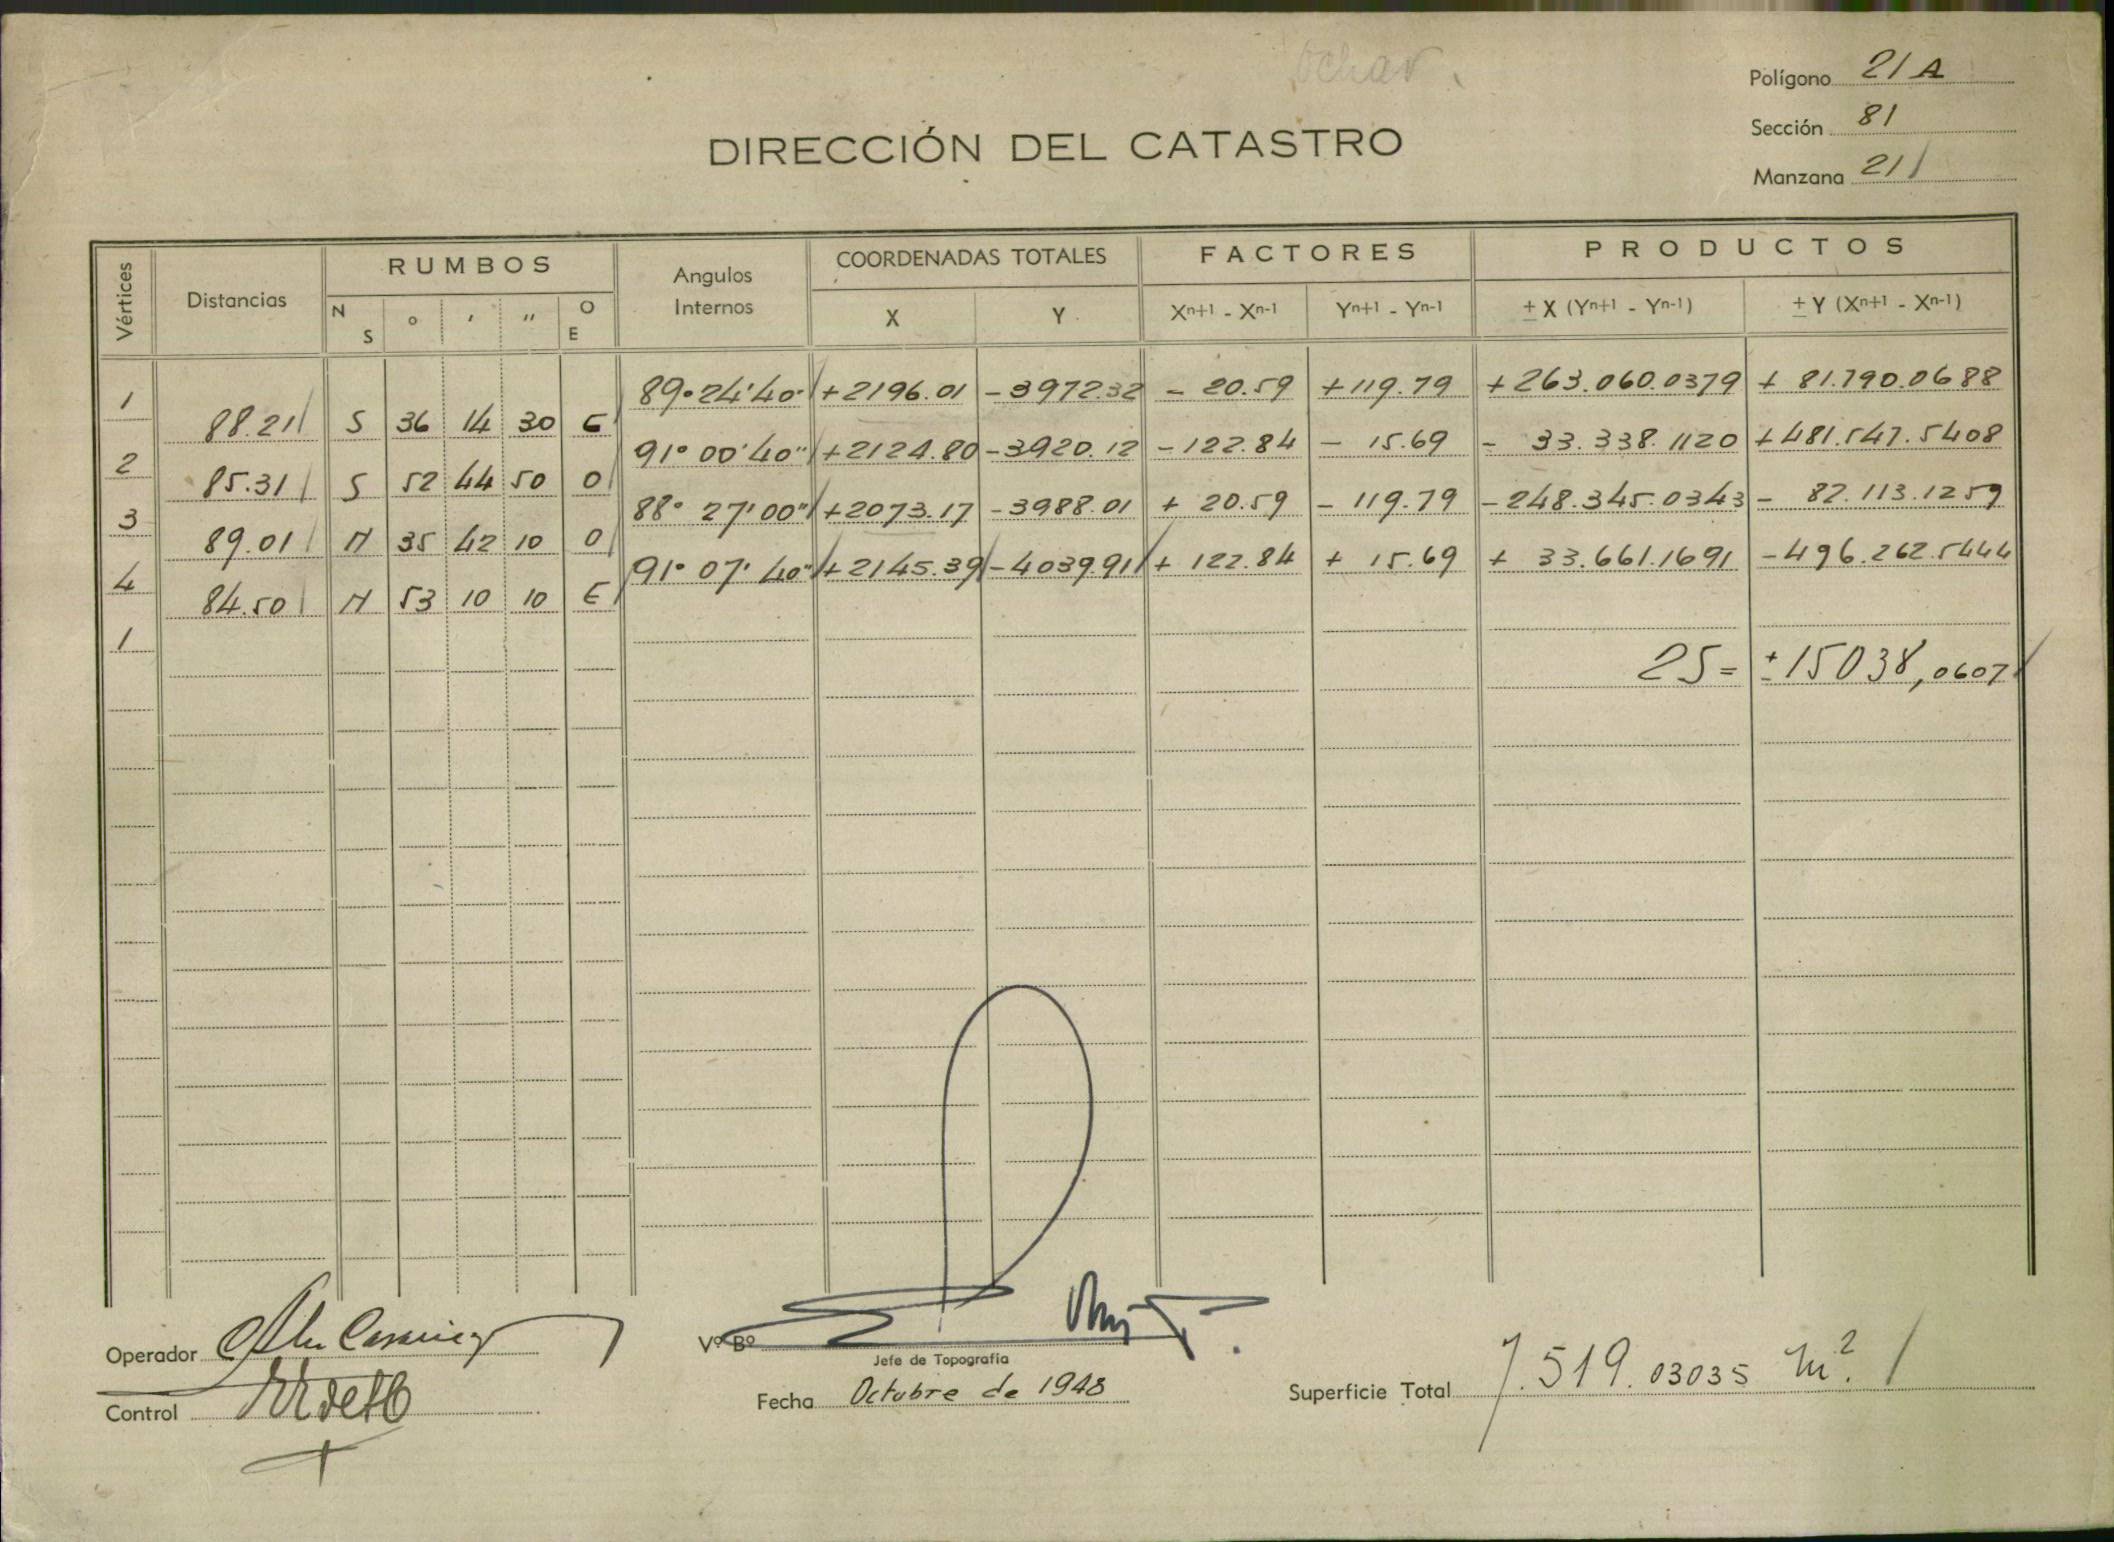 Polígono 21 A
Sección 81
Manzana 21
DIRECCIÓN DEL CATASTRO
Vértices Distancias RUMBOS Angulos Internos COORDENADAS TOTALES FACTORES PRODUCTOS
N S ° ' " O E X Y Xn+1 - Xn-1 Yn+1 - Yn-1 ± X (Yn+1 - Yn-1) ± Y (Xn+1 - Xn-1)
1 89°24'40" +2196.01 -3972.32 - 20.59 +119.79 +263.060.0379 + 81.790.0688
88.21 S 36 14 30 E
2 91° 00'40" +2124.80 -3920.12 -122.84 - 15.69 - 33.338.1120 +481.547.5408
85.31 S 52 44 50 O
3 88° 27'00" +2073.17 -3988.01 + 20.59 - 119.79 -248.345.0343 - 82.113.1259
89.01 N 35 42 10 O
4 91° 07' 40" +2145.39 -4039.91 + 122.84 + 15.69 + 33.661.1691 -496.262.5444
84.50 N 53 10 10 E
1
2S = ±15038,0607
Operador
Vº Bº
Jefe de Topografía
Control
Fecha Octubre de 1948
Superficie Total 7.519.03035 m².